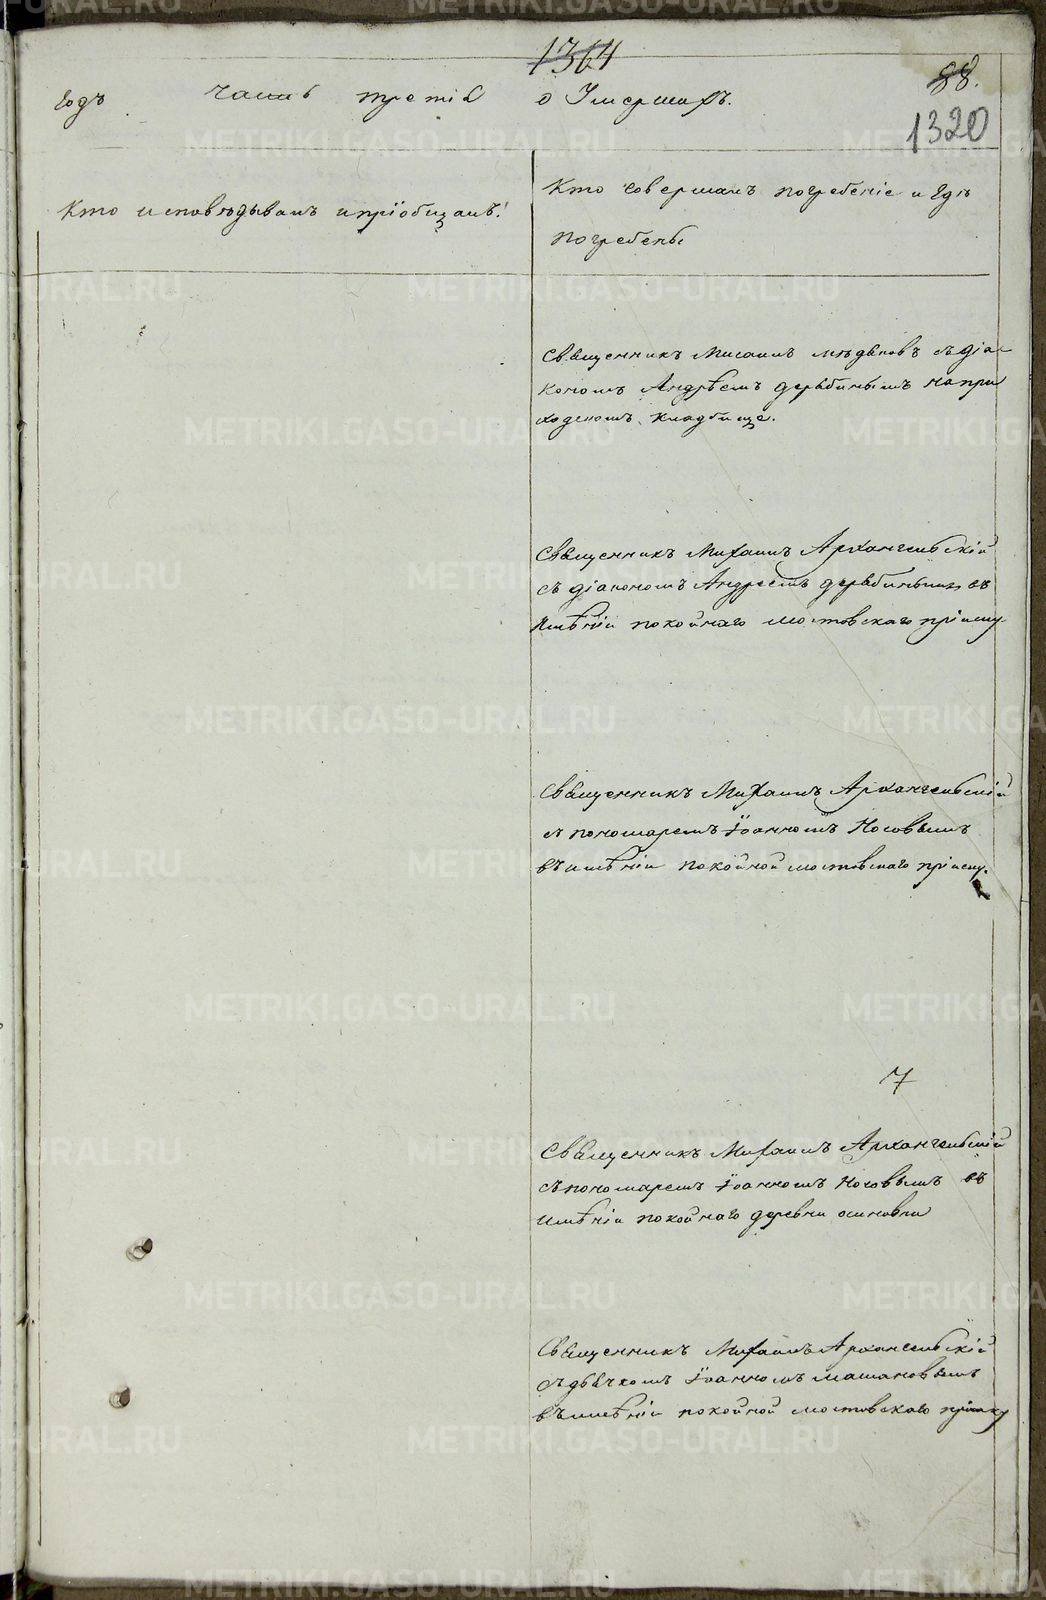 1364
88.
1320
годъ часть третія о Умершихъ.
Кто исповѣдывалъ и пріобщалъ.
Кто совершалъ погребеніе и гдѣ
погребены
Священникъ Мисаилъ Мѣдяковъ съ діа-
кономъ Андрѣемъ Дерябинымъ на при
ходскомъ кладбище.
Священникъ Михаилъ Архангельскій
съ діакономъ Андреемъ Дерябинымъ въ
имѣніи покойнаго Мостовскаго пріиску
Священникъ Михаилъ Архангельскій
съ пономаремъ Іоанномъ Носовымъ
въ имѣніи покойной Мостовскаго пріиску.
7
Священникъ Михаилъ Архангельскій
съ пономаремъ Іоанномъ Носовымъ въ
имѣніи покойнаго деревни Осиновки
Священникъ Михаилъ Архангельскій
съ дьячкомъ Іоанномъ Машановымъ
въ имѣніи покойной Мостовскаго пріиску
METRIKI.GASO-URAL.RU